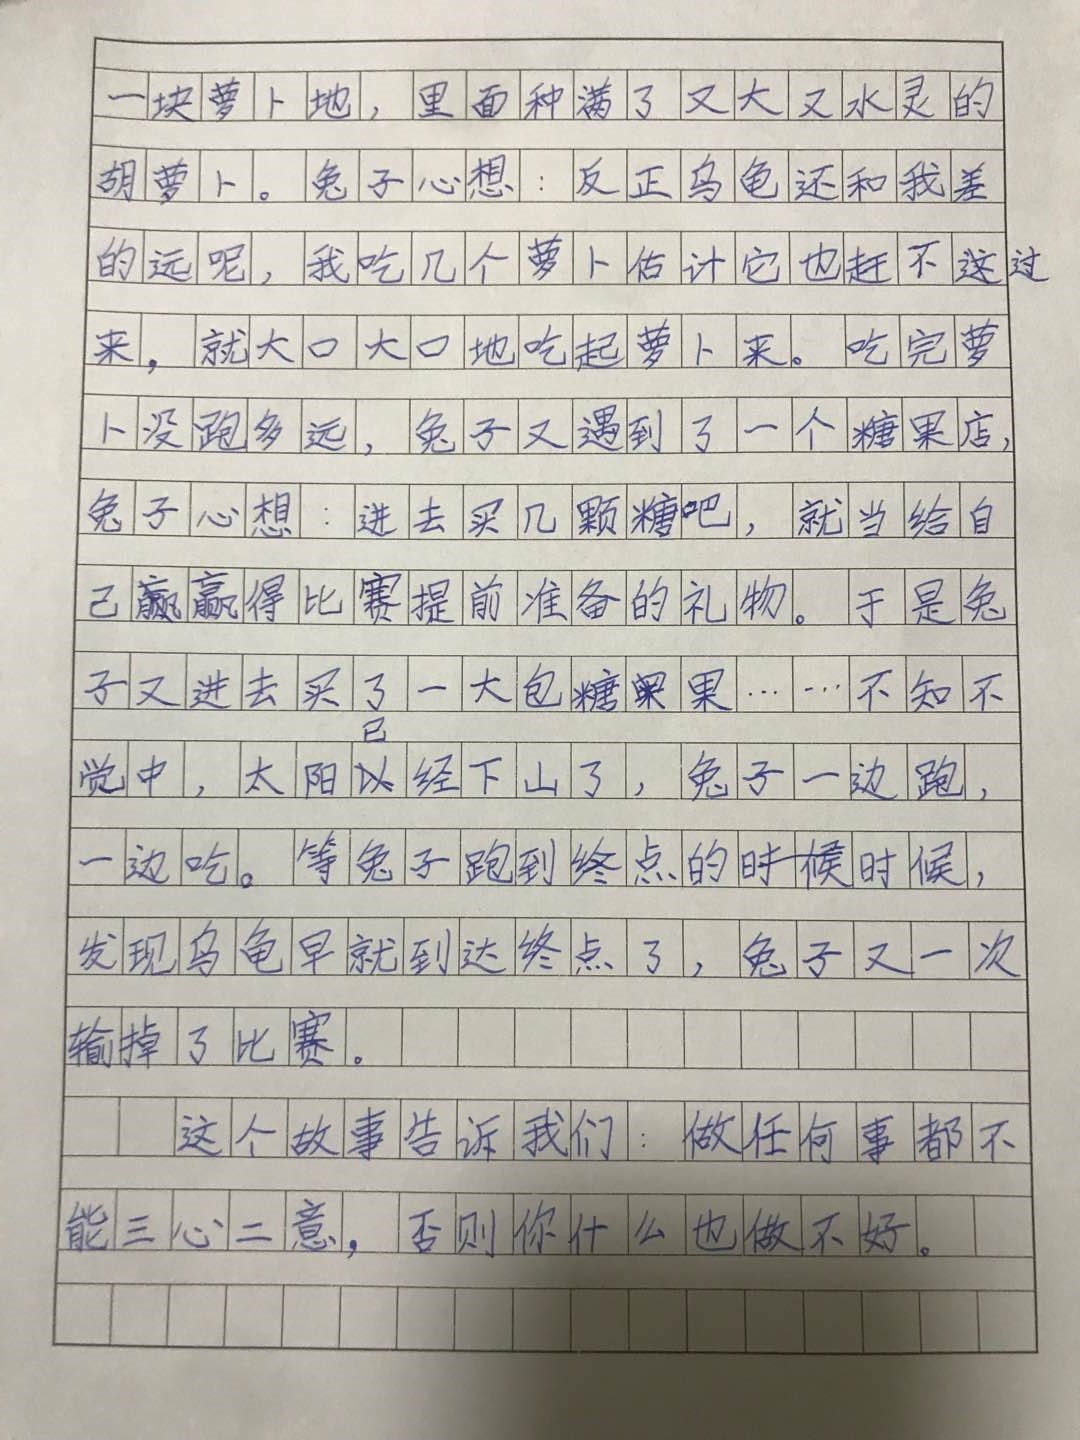 一块萝卜地，里面种满了又大又水灵的
胡萝卜。兔子心想：反正乌龟还和我差
的远呢，我吃几个萝卜估计它也赶不这过
来，就大口大口地吃起萝卜来。吃完萝
卜没跑多远，兔子又遇到了一个糖果店，
兔子心想：进去买几颗糖吧，就当给自
己赢赢得比赛提前准备的礼物。于是兔
子又进去买了一大包糖果果……不知不
已
觉中，太阳以经下山了，兔子一边跑，
一边吃。等兔子跑到终点的时候时候，
发现乌龟早就到达终点了，兔子又一次
输掉了比赛。
这个故事告诉我们：做任何事都不
能三心二意，否则你什么也做不好。